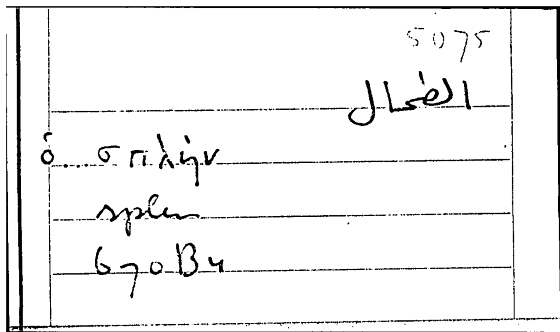 5075
الطحال
ὁ... σπλήν
splen
670B4